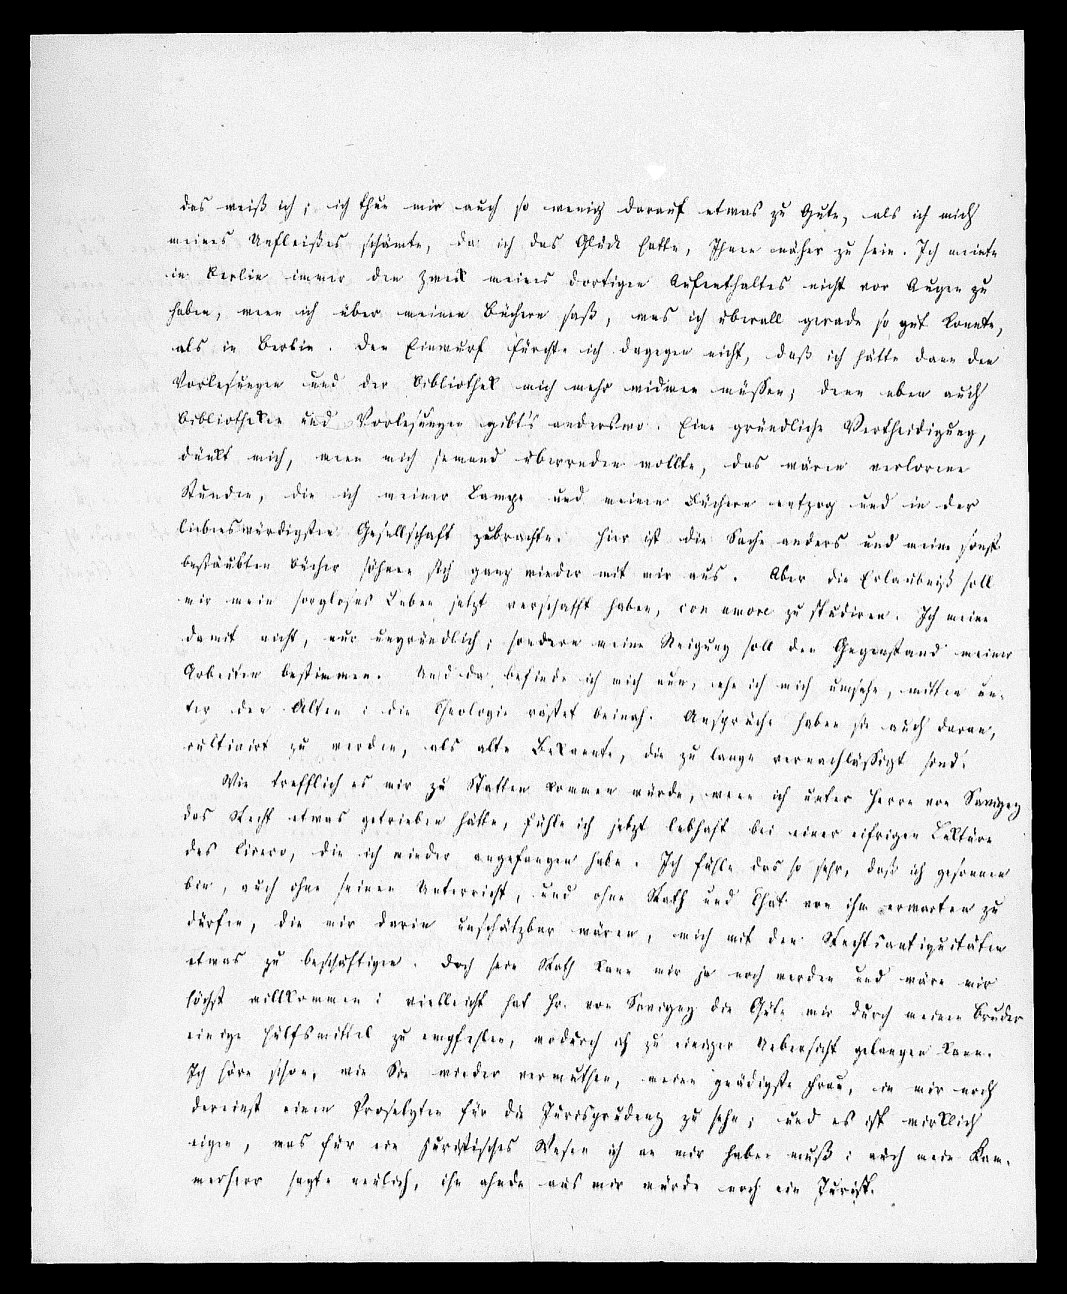 das weiß ich; ich thue mir auch so wenig darauf etwas zu Gute, als ich mich
meines Unfleißes schämte, da ich das Glück hatte, Ihnen näher zu sein. Ich meinte
in Berlin immer den Zweck meines dortigen Aufenthaltes nicht vor Augen zu
haben, wenn ich über meinen Büchern saß, was ich überall gerade so gut konnte,
als in Berlin. Den Einwurf fürchte ich dagegen nicht, daß ich hätte dann den
Vorlesungen und der Bibliothek mich mehr widmen müssen; denn eben auch
Bibliotheken und Vorlesungen gibt's anderswo. Eine gründliche Vertheidigung,
dünkt mich, wenn mich jemand überreden wollte, das wären verlorene
Stunden, die ich meiner Lampe und meinen Büchern entzog und in der
liebenswürdigsten Gesellschaft zubrachte. Hier ist die Sache anders und meine sonst
bestäubten Bücher söhnen sich ganz wieder mit mir aus. Aber die Erlaubniß soll
mir mein sorgloses Leben jetzt verschafft haben, con amore zu studiren. Ich meine
damit nicht, nur ungründlich; sondern meine Neigung soll den Gegenstand meiner
Arbeiten bestimmen. Und da befinde ich mich nun, ehe ich mich umsehe, mitten un-
ter den Alten: die Theologie rastet beinah. Ansprüche haben sie auch daran,
cultivirt zu werden, als alte Bekannte, die zu lange vernachlässigt sind.
Wie trefflich es mir zu Statten kommen würde, wenn ich unter Herrn von Savigny
das Recht etwas getrieben hätte, fühle ich jetzt lebhaft bei einer eifrigen Lektüre
des Cicero, die ich wieder angefangen habe. Ich fühle das so sehr, daß ich gesonnen
bin, auch ohne seinen Unterricht, und ohne Rath und That von ihm erwarten zu
dürfen, die mir darin unschätzbar wären, mich mit den Rechtsantiquitäten
etwas zu beschäftigen. Doch sein Rath kann mir ja noch werden und wäre mir
höchst willkommen: vielleicht hat Hr. von Savigny die Güte mir durch meinen Bruder
einige Hülfsmittel zu empfehlen, wodurch ich zu einiger Uebersicht gelangen kann.
Ich höre schon, wie Sie wieder vermuthen, meine gnädigste Frau, in mir noch
dereinst einen Proselyten für die Jurisprudenz zu sehn; und es ist wirklich
eigen, was für ein juristisches Wesen ich an mir haben muß: auch mein Kam-
merherr sagte neulich, ihn ahnde aus mir würde noch ein Jurist.